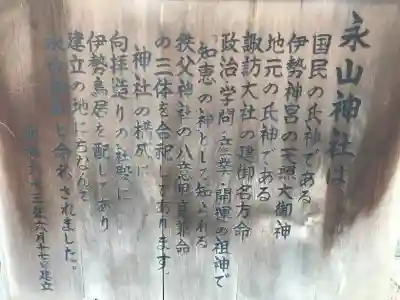 永山神社は
国民の氏神である
伊勢神宮の天照大御神
地元の氏神である
諏訪大社の建御名方命
政治・学問・産業・開運の祖神で
「知恵の神として知られる
秩父神社の八意思兼命
の三体を合祀してあります。
神社の様式は
向拝造りの社殿に
伊勢鳥居を配してあり
建立の地にちなんで
永山神社と命名されました。
昭和六十三年六月十七日建立